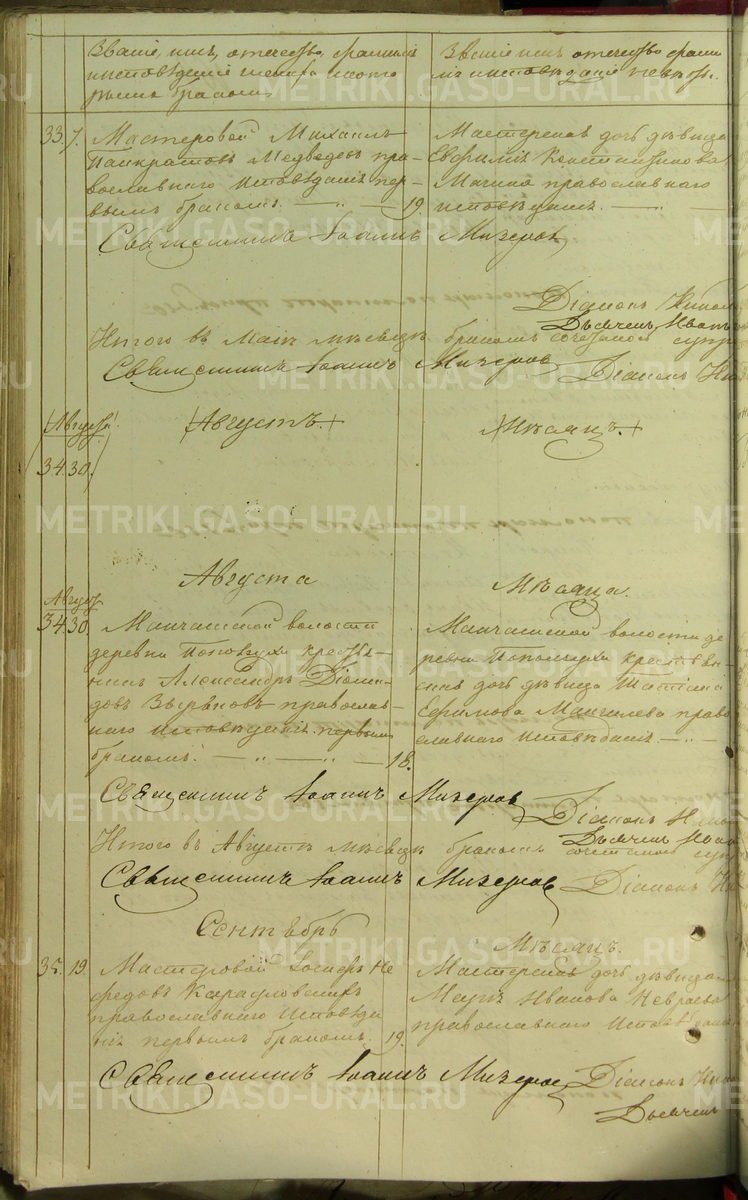 Званіе, имя, отечество, фамилія
и исповѣданіе жениха и кото
рымъ бракомъ.
Званіе имя отечество фами
лія и исповѣданіе невѣсты.
33. 7. Мастеровой Михаилъ
Панкратовъ Медведевъ пра-
вославнаго исповѣданія пер-
вымъ бракомъ. 19
Мастерская дочь дѣвица
Евфимія Константинова
православнаго
исповѣданія.
Священникъ Іоаннъ Мизеровъ
Діаконъ
Дьячекъ Иванъ
Итого въ Маѣ мѣсяцѣ бракомъ сочеталось
Священникъ Іоаннъ Мизеровъ Діаконъ
Августъ Августъ Мѣсяцъ.
34. 30.
Августа Мѣсяца.
Август
34. 30. Манчажской волости
деревни крестья-
нинъ Александръ Діоми-
довъ православ-
наго исповѣданія первымъ
бракомъ. 18.
Манчажской волости де
ревни крестьян-
ская дочь дѣвица Татіана
Ефимова право
славнаго исповѣданія.
Священникъ Іоаннъ Мизеровъ Діаконъ
Дьячекъ Иван
Итого въ Августѣ мѣсяцѣ бракомъ сочеталось
Священникъ Іоаннъ Мизеровъ Діаконъ
Сентябрь Мѣсяцъ.
35. 19. Мастеровой Іосифъ Не
федовъ
православнаго исповѣда
нія первымъ бракомъ. 19.
Мастерская дочь дѣвица
Иванова
православнаго исповѣданія
Священникъ Іоаннъ Мизеровъ Діаконъ
Дьячекъ
METRIKI.GASO-URAL.RU